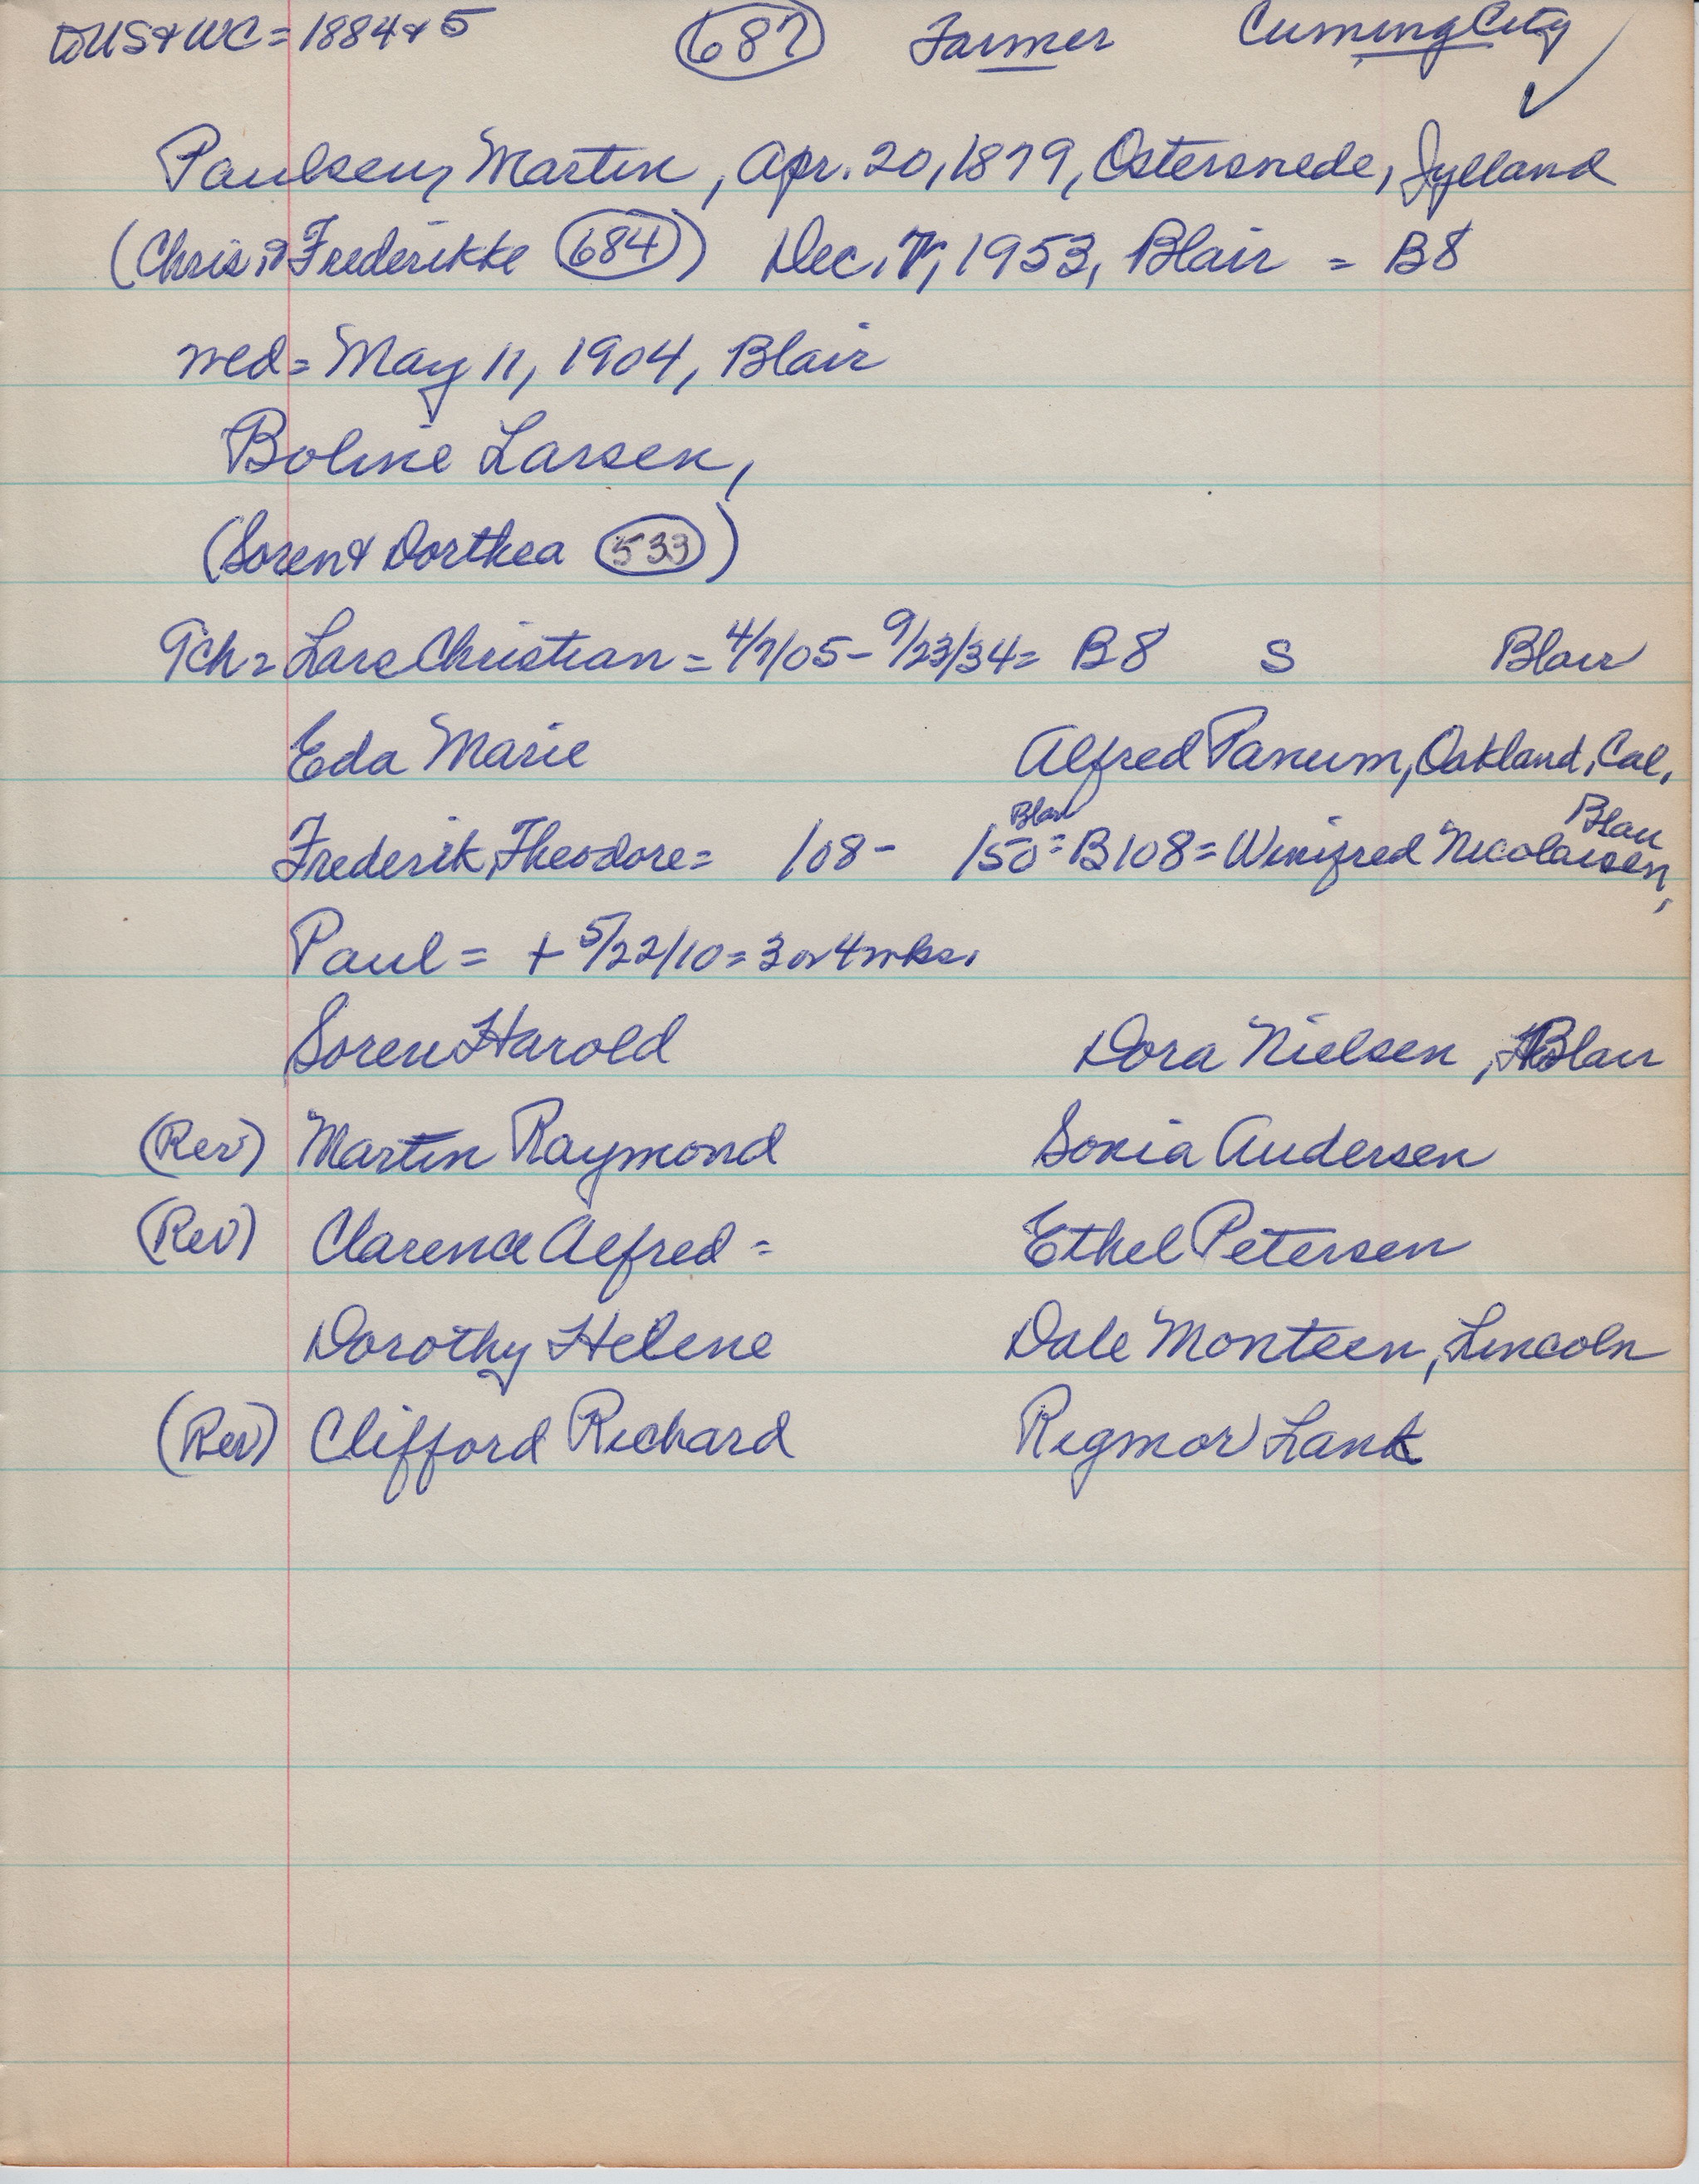 to US & WC = 1884 & 5 (687) Farmer Cuming City ✓
Paulsen, Martin, Apr. 20, 1879, Ostersnede, Jylland
(Chris & Frederikke (684)) Dec. , 1953, Blair = B8
wed = May 11, 1904, Blair
Boline Larsen,
(Soren & Dorthea (533))
9ch = Lars Christian = 4/7/05 - 9/23/34 = B8 S Blair
Eda Marie Alfred Panum, Oakland, Cal.
Frederik Theodore = /08 - /50 Blair = B108 = Winifred Nicolaisen, Blair
Paul = + 5/22/10 = 3 or 4 wks.
Soren Harold Dora Nielsen, Blair
(Rev) Martin Raymond Sonia Andersen
(Rev) Clarence Alfred = Ethel Petersen
Dorothy Helene Dale Monteen, Lincoln
(Rev) Clifford Richard Rigmor Lank